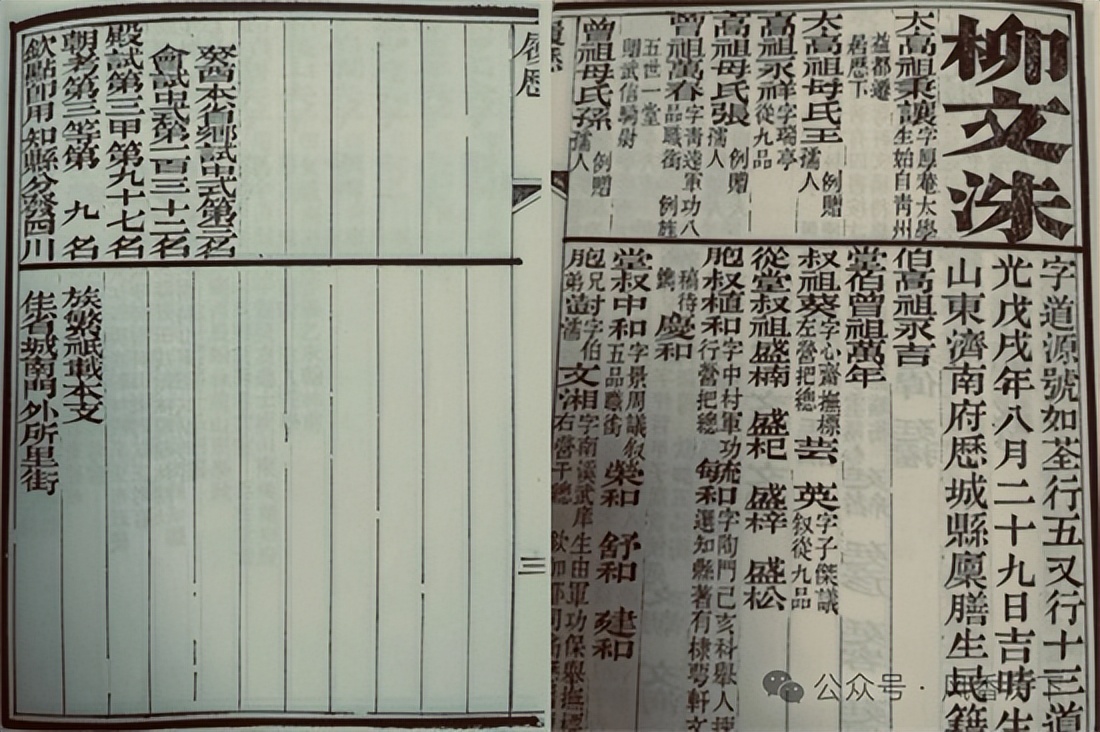 柳文洙
字道源號如荃行五又行十三道
光戊戌年八月二十九日吉時生
山東濟南府歷城縣廩膳生民籍
太高祖秉讓字鳳菴太學生始自青州
益都遷居歷下
太高祖母氏王例贈孺人
高祖永祥字瑞亭從九品
高祖母氏張例贈孺人
曾祖萬春字青蓮軍功八品職銜 例旌
五世一堂武信騎尉
曾祖母氏孫例贈孺人
伯高祖永吉
堂伯曾祖萬年
叔祖葵字心齋撫標左營把總 芸 英字子傑議敘從九品
從堂叔祖盛楠 盛杞 盛梓 盛松
胞叔植和字中村軍功行營把總 和字陶門己亥科舉人揀選知縣著有棣萼軒文
稿待鐫 慶和
堂叔中和字景周議敘五品職銜 榮和 舒和 建和
胞兄弟 文湘字南溪武庠生由軍功保舉撫標右營千總
履歷
三
癸酉本省鄉試中式第三名
會試中式第一百三十二名
殿試第三甲第九十七名
朝考第三等第九名
欽點即用知縣分發四川
族繁祗載本支
住省城南門外所里街
公众号